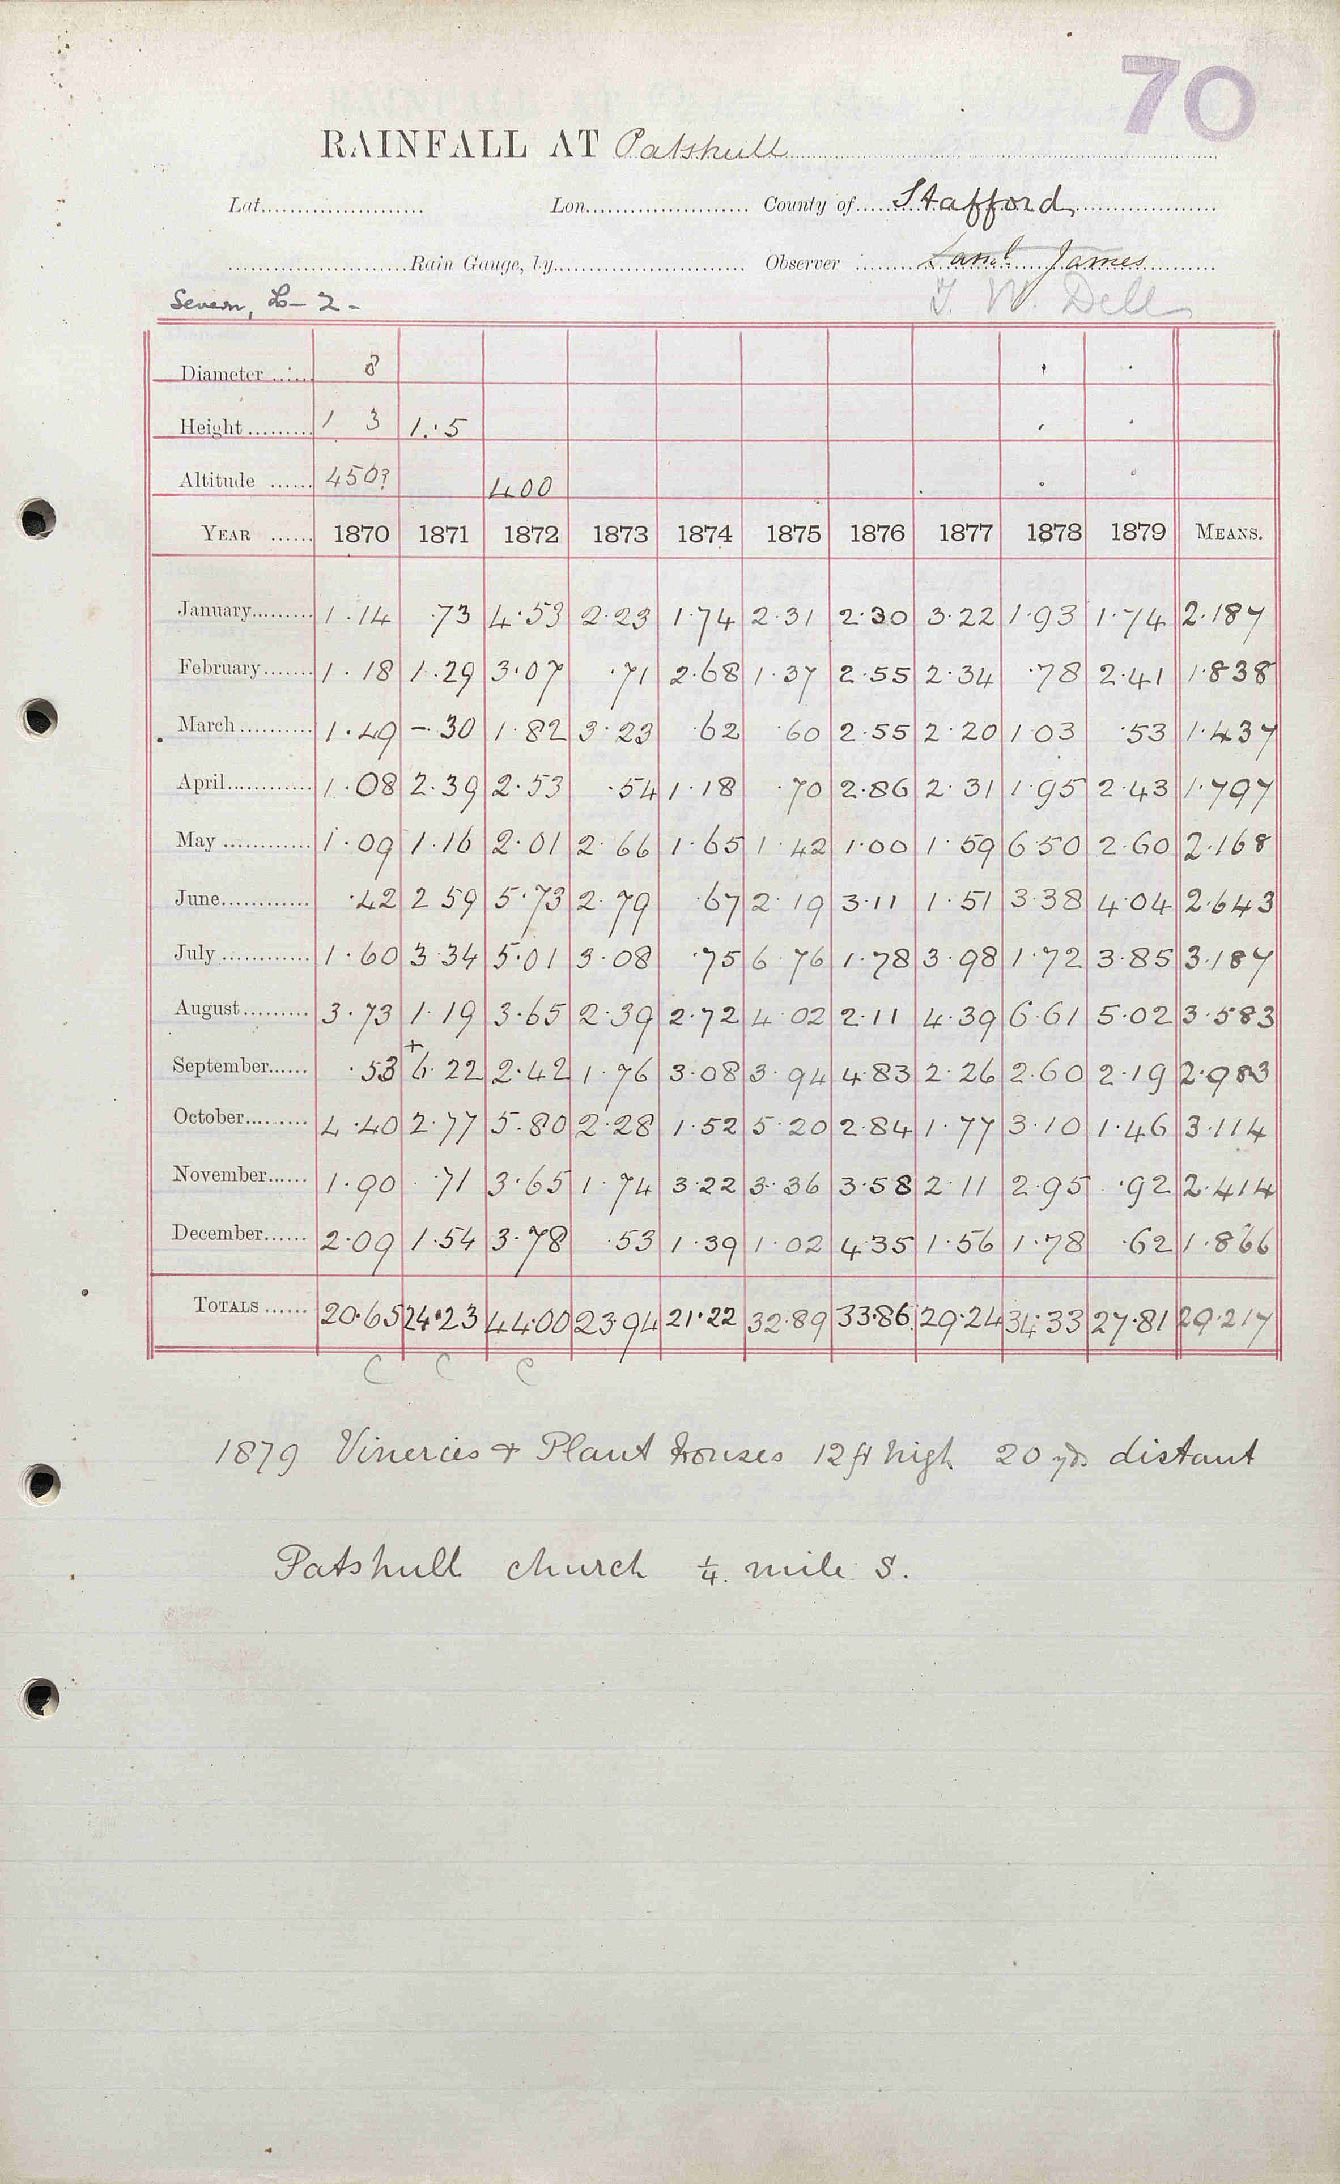 70
RAINFALL AT Patshull
Lat. Lon. County of Stafford
Rain Gauge, by Observer Saml James
Severn, L-2- T. W. Dell
Diameter 8
Height 1 3 1.5
Altitude 450? 400
YEAR 1870 1871 1872 1873 1874 1875 1876 1877 1878 1879 MEANS.
January 1.14 .73 4.53 2.23 1.74 2.31 2.30 3.22 1.93 1.74 2.187
February 1.18 1.29 3.07 .71 2.68 1.37 2.55 2.34 .78 2.41 1.838
March 1.49 -.30 1.82 3.23 .62 .60 2.55 2.20 1.03 .53 1.437
April 1.08 2.39 2.53 .54 1.18 .70 2.86 2.31 1.95 2.43 1.797
May 1.09 1.16 2.01 2.66 1.65 1.42 1.00 1.59 6.50 2.60 2.168
June .42 2 59 5.73 2.79 .67 2.19 3.11 1.51 3.38 4.04 2.643
July 1.60 3 34 5.01 3.08 .75 6 76 1.78 3.98 1.72 3.85 3.187
August 3.73 1.19 3.65 2.39 2.72 4 02 2.11 4.39 6.61 5.02 3.583
September .53 + 6.22 2.42 1.76 3.08 3.94 4.83 2.26 2.60 2.19 2.983
October 4.40 2.77 5.80 2.28 1.52 5 20 2.84 1.77 3.10 1.46 3.114
November 1.90 .71 3.65 1.74 3.22 3.36 3.58 2 11 2.95 .92 2.414
December 2.09 1.54 3.78 .53 1.39 1.02 4.35 1.56 1.78 .62 1.866
TOTALS 20.65 24.23 44.00 23.94 21.22 32.89 33.86 29.24 34.33 27.81 29.217
C C C
1879 Vineries + Plant houses 12 ft high 20 yds distant
Patshull church ¼ mile S.